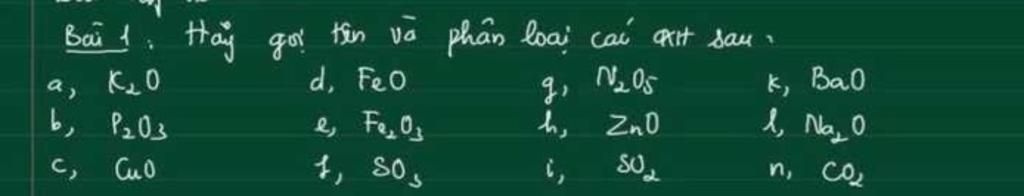 Bài 1. Hãy gọi tên và phân loại các oxit sau:
a, K₂O d, FeO g, N₂O₅ k, BaO
b, P₂O₃ e, Fe₂O₃ h, ZnO l, Na₂O
c, CuO f, SO₃ i, SO₂ n, CO₂